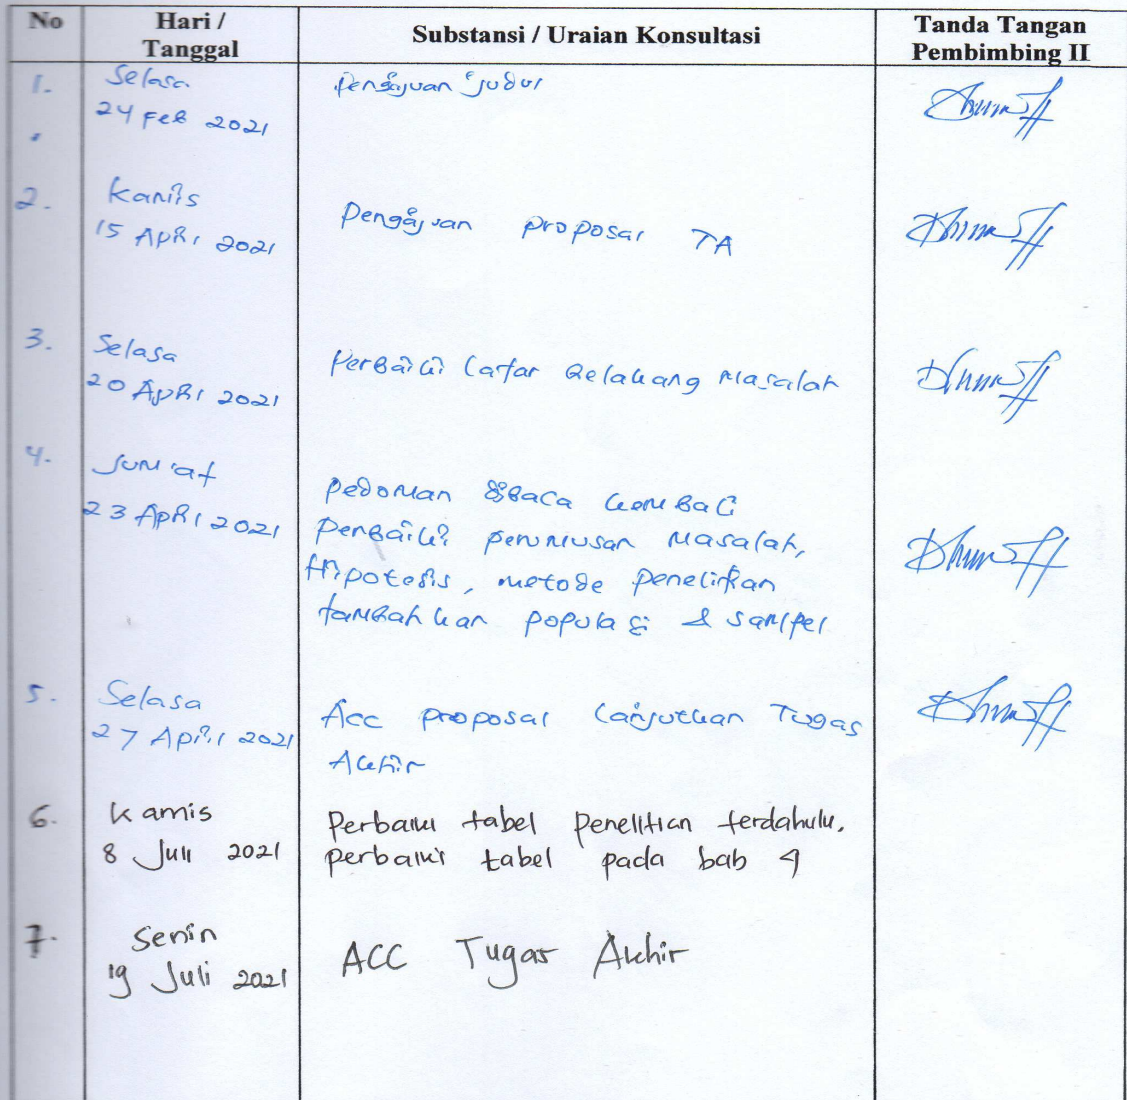 No
Hari /
Tanggal
Substansi / Uraian Konsultasi
Tanda Tangan
Pembimbing II
1.
Selasa
24 Feb 2021
Pengajuan judul
2.
Kamis
15 April 2021
Pengajuan proposal TA
3.
Selasa
20 April 2021
Perbaiki latar belakang masalah
4.
Jum'at
23 April 2021
pedoman dibaca kembali
Perbaiki perumusan masalah,
Hipotesis, metode penelitian
tambahkan populasi & sampel
5.
Selasa
27 April 2021
Acc proposal lanjutkan Tugas
Akhir
6.
Kamis
8 Juli 2021
Perbaiki tabel penelitian terdahulu,
perbaiki tabel pada bab 4
7.
Senin
19 Juli 2021
ACC Tugas Akhir